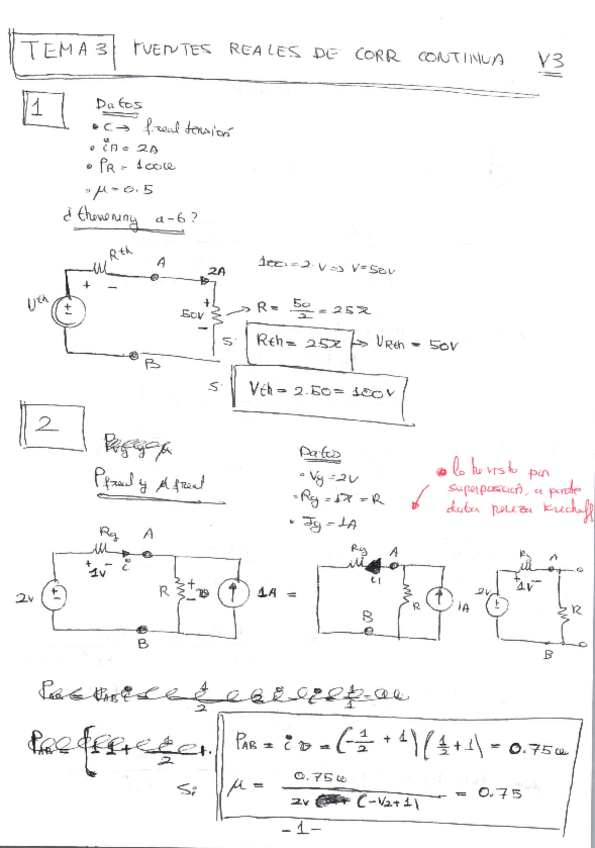 TEMA 3 FUENTES REALES DE CORR CONTINUA V3
1 Datos
• C → f real tensión
• in = 2A
• PR = 100w
• μ = 0.5
¿ Thevening a-b?
Rth A 2A
100 = 2·V ⇒ V = 50V
Vth + - ± + 50V - → R = 50/2 = 25Ω
Si Rth = 25Ω → VRth = 50V
B
Si Vth = 2·50 = 100V
2
P freal y μ freal
Datos
• Vg = 2V
• Rg = 1Ω = R
• Ig = 1A
• lo he visto por
superposición, a parte
daba pereza Kirchoff
Rg A + 1V - i 2V ± R + v - 1A = B
Rg A i1 R 1A B
Rg A + 1V - 2V ± R B
PAB = i v = (-1/2 + 1) (1/2 + 1) = 0.75w
Si μ = 0.75w / 2V (-1/2+1) = 0.75
-1-